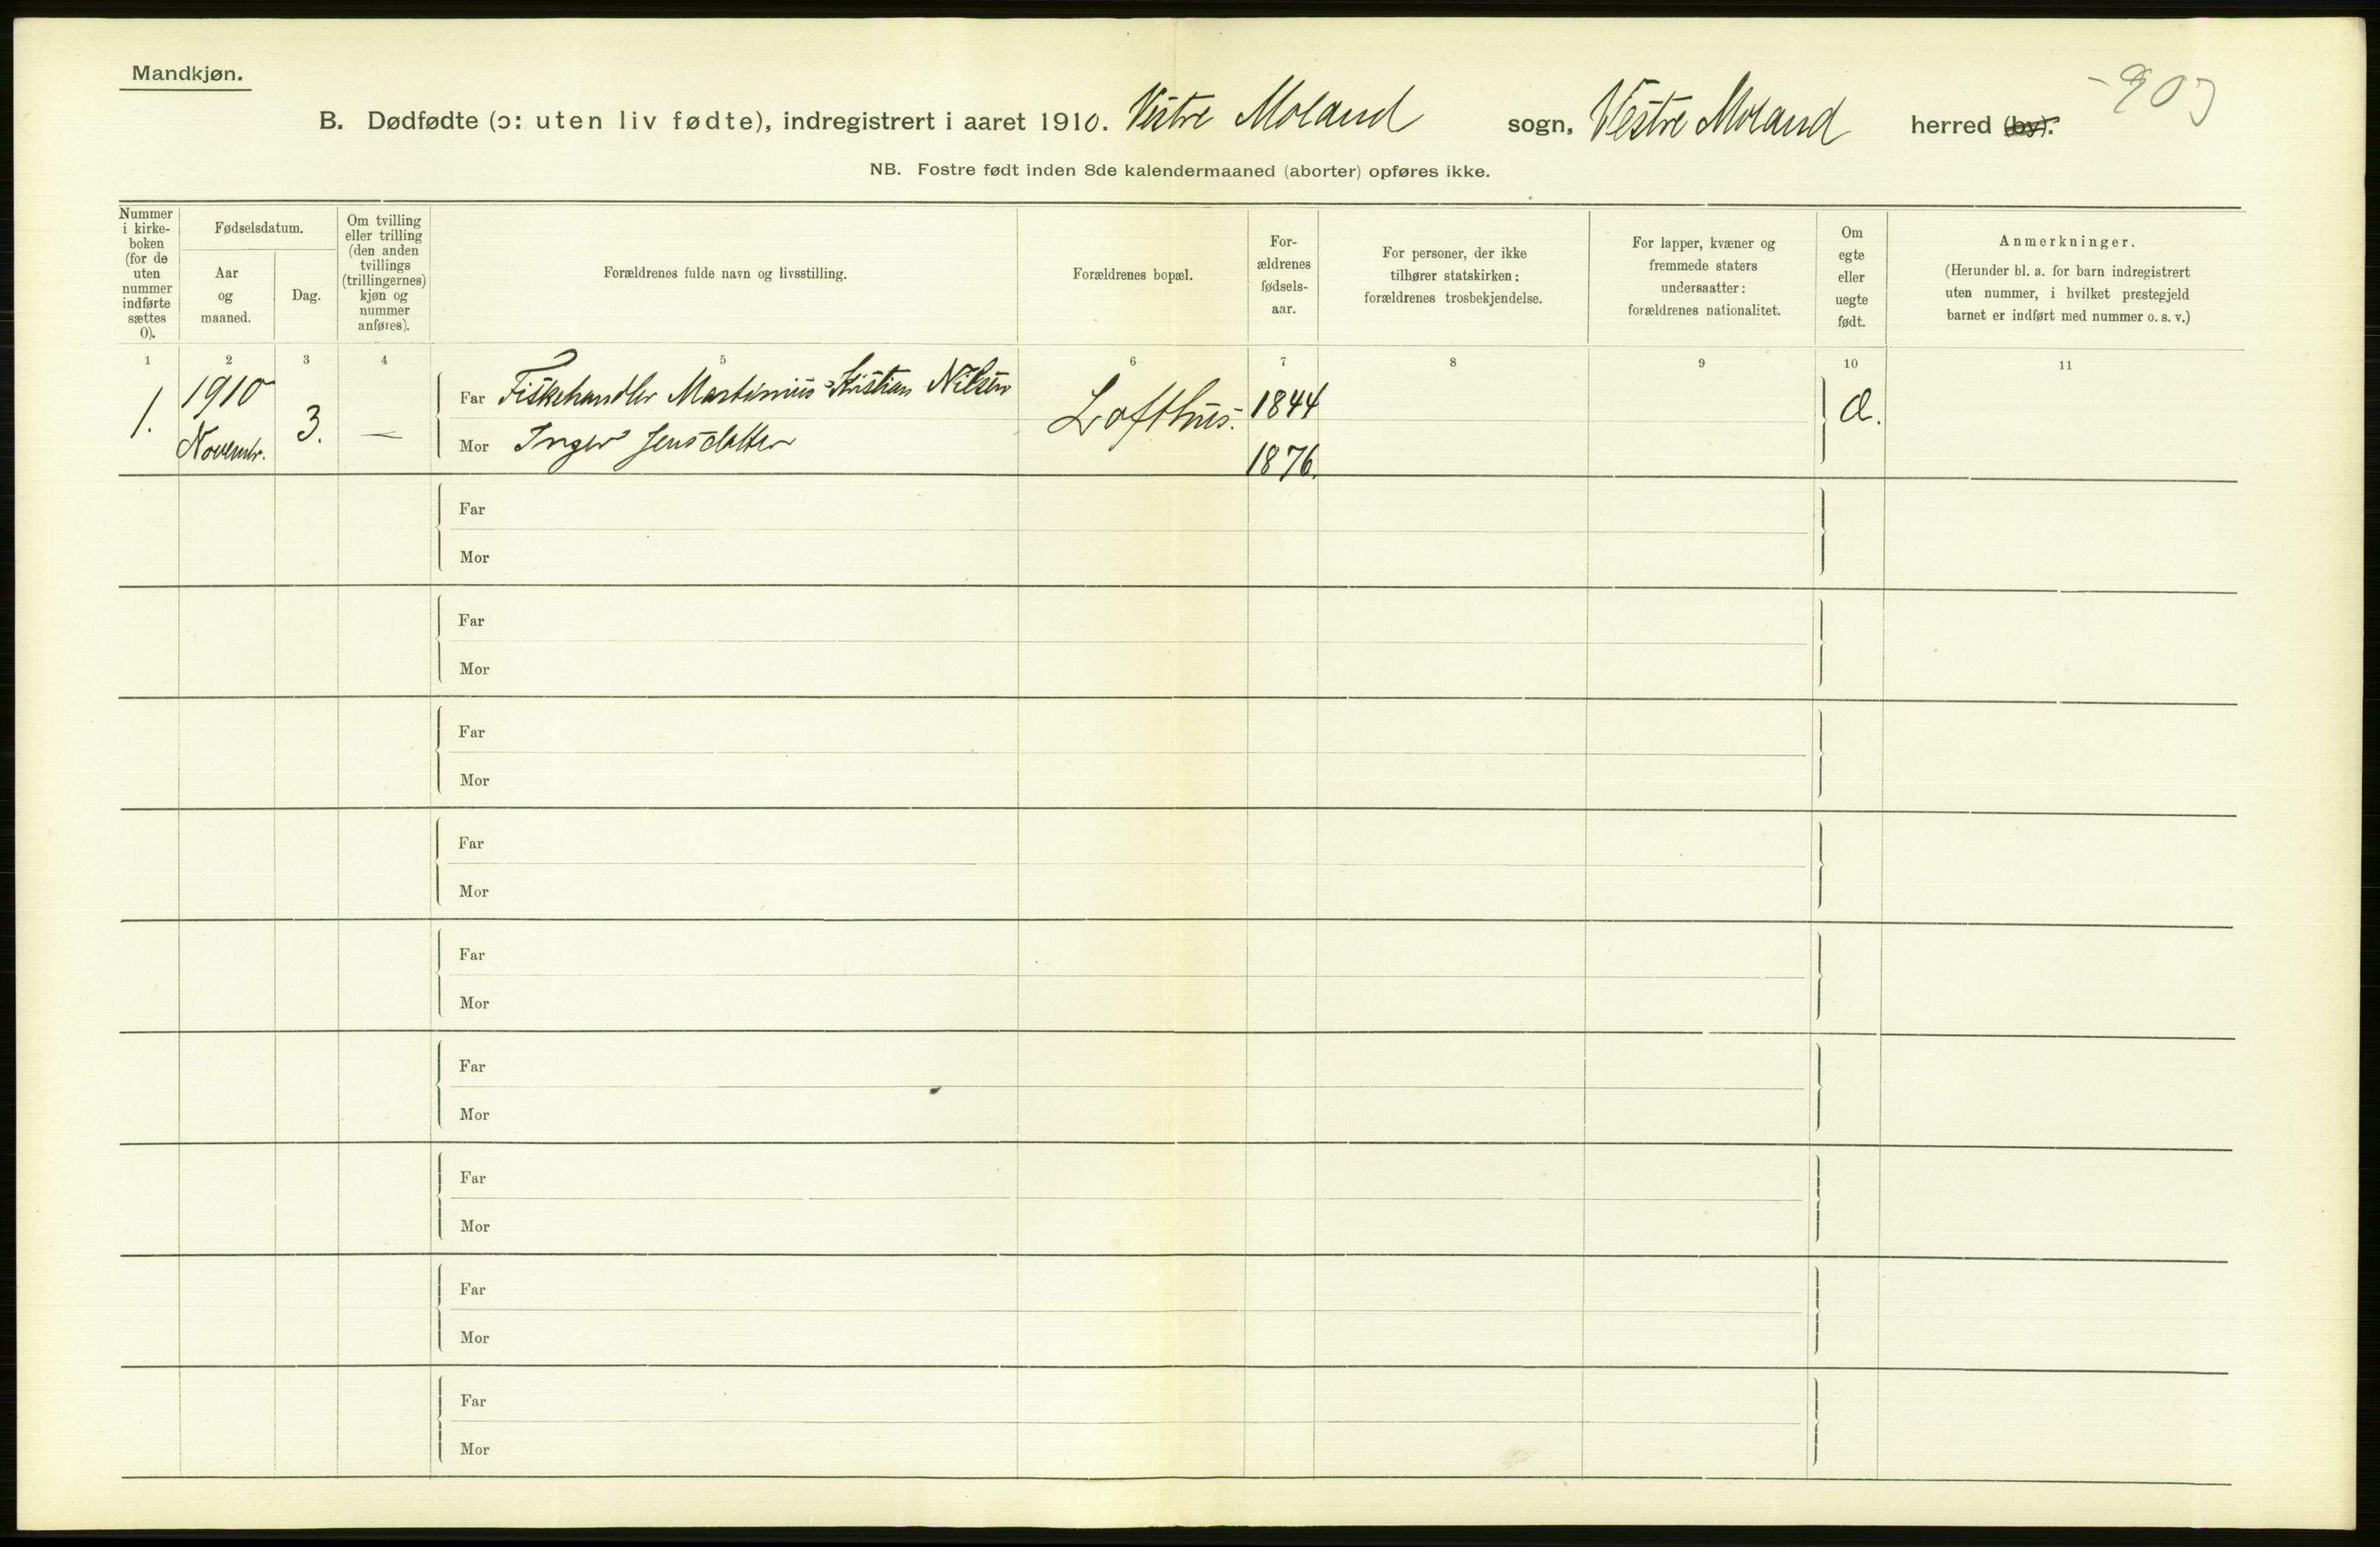 Mandkjøn.
B. Dødfødte (ɔ: uten liv fødte), indregistrert i aaret 1910. Vestre Moland sogn, Vestre Moland herred (by).
NB. Fostre født inden 8de kalendermaaned (aborter) opføres ikke.
Nummer i kirke-boken (for de uten nummer indførte sættes 0).
Fødselsdatum.
Aar og maaned.
Dag.
Om tvilling eller trilling (den anden tvillings (trillingernes) kjøn og nummer anføres).
Forældrenes fulde navn og livsstilling.
Forældrenes bopæl.
For-ældrenes fødsels-aar.
For personer, der ikke tilhører statskirken: forældrenes trosbekjendelse.
For lapper, kvæner og fremmede staters undersaatter: forældrenes nationalitet.
Om egte eller uegte født.
Anmerkninger.
(Herunder bl. a. for barn indregistrert uten nummer, i hvilket prestegjeld barnet er indført med nummer o. s. v.)
1 2 3 4 5 6 7 8 9 10 11
1. 1910 Novembr. 3. — Far Fiskehandler Martinius Kristian Nilsen Lofthus. 1844
Mor Inger Jensdatter 1876.
Far
Mor
Far
Mor
Far
Mor
Far
Mor
Far
Mor
Far
Mor
Far
Mor
Far
Mor
Far
Mor